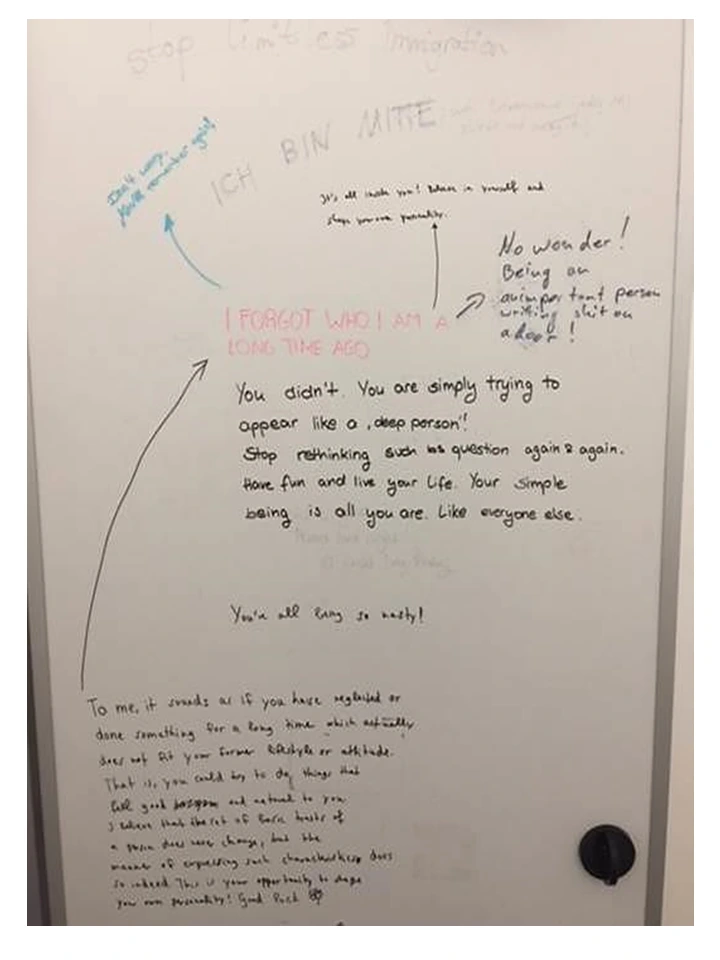 stop limitless Immigration
ICH BIN MITTE
Don't worry,
you'll remember again!
It's all inside you! Believe in yourself and
shape your own personality.
No wonder!
Being an
unimportant person
writing shit on
a door!
I FORGOT WHO I AM A
LONG TIME AGO
You didn't. You are simply trying to
appear like a "deep person"!
Stop rethinking such question again & again.
Have fun and live your life. Your simple
being is all you are. Like everyone else.
You're all being so nasty!
To me, it sounds as if you have neglected or
done something for a long time which actually
does not fit your former lifestyle or attitude.
That is, you could try to do things that
feel good and natural to you.
I believe that the set of basic traits of
a person does never change, but the
manner of expressing such characteristics does
so indeed. This is your opportunity to shape
your own personality! Good luck